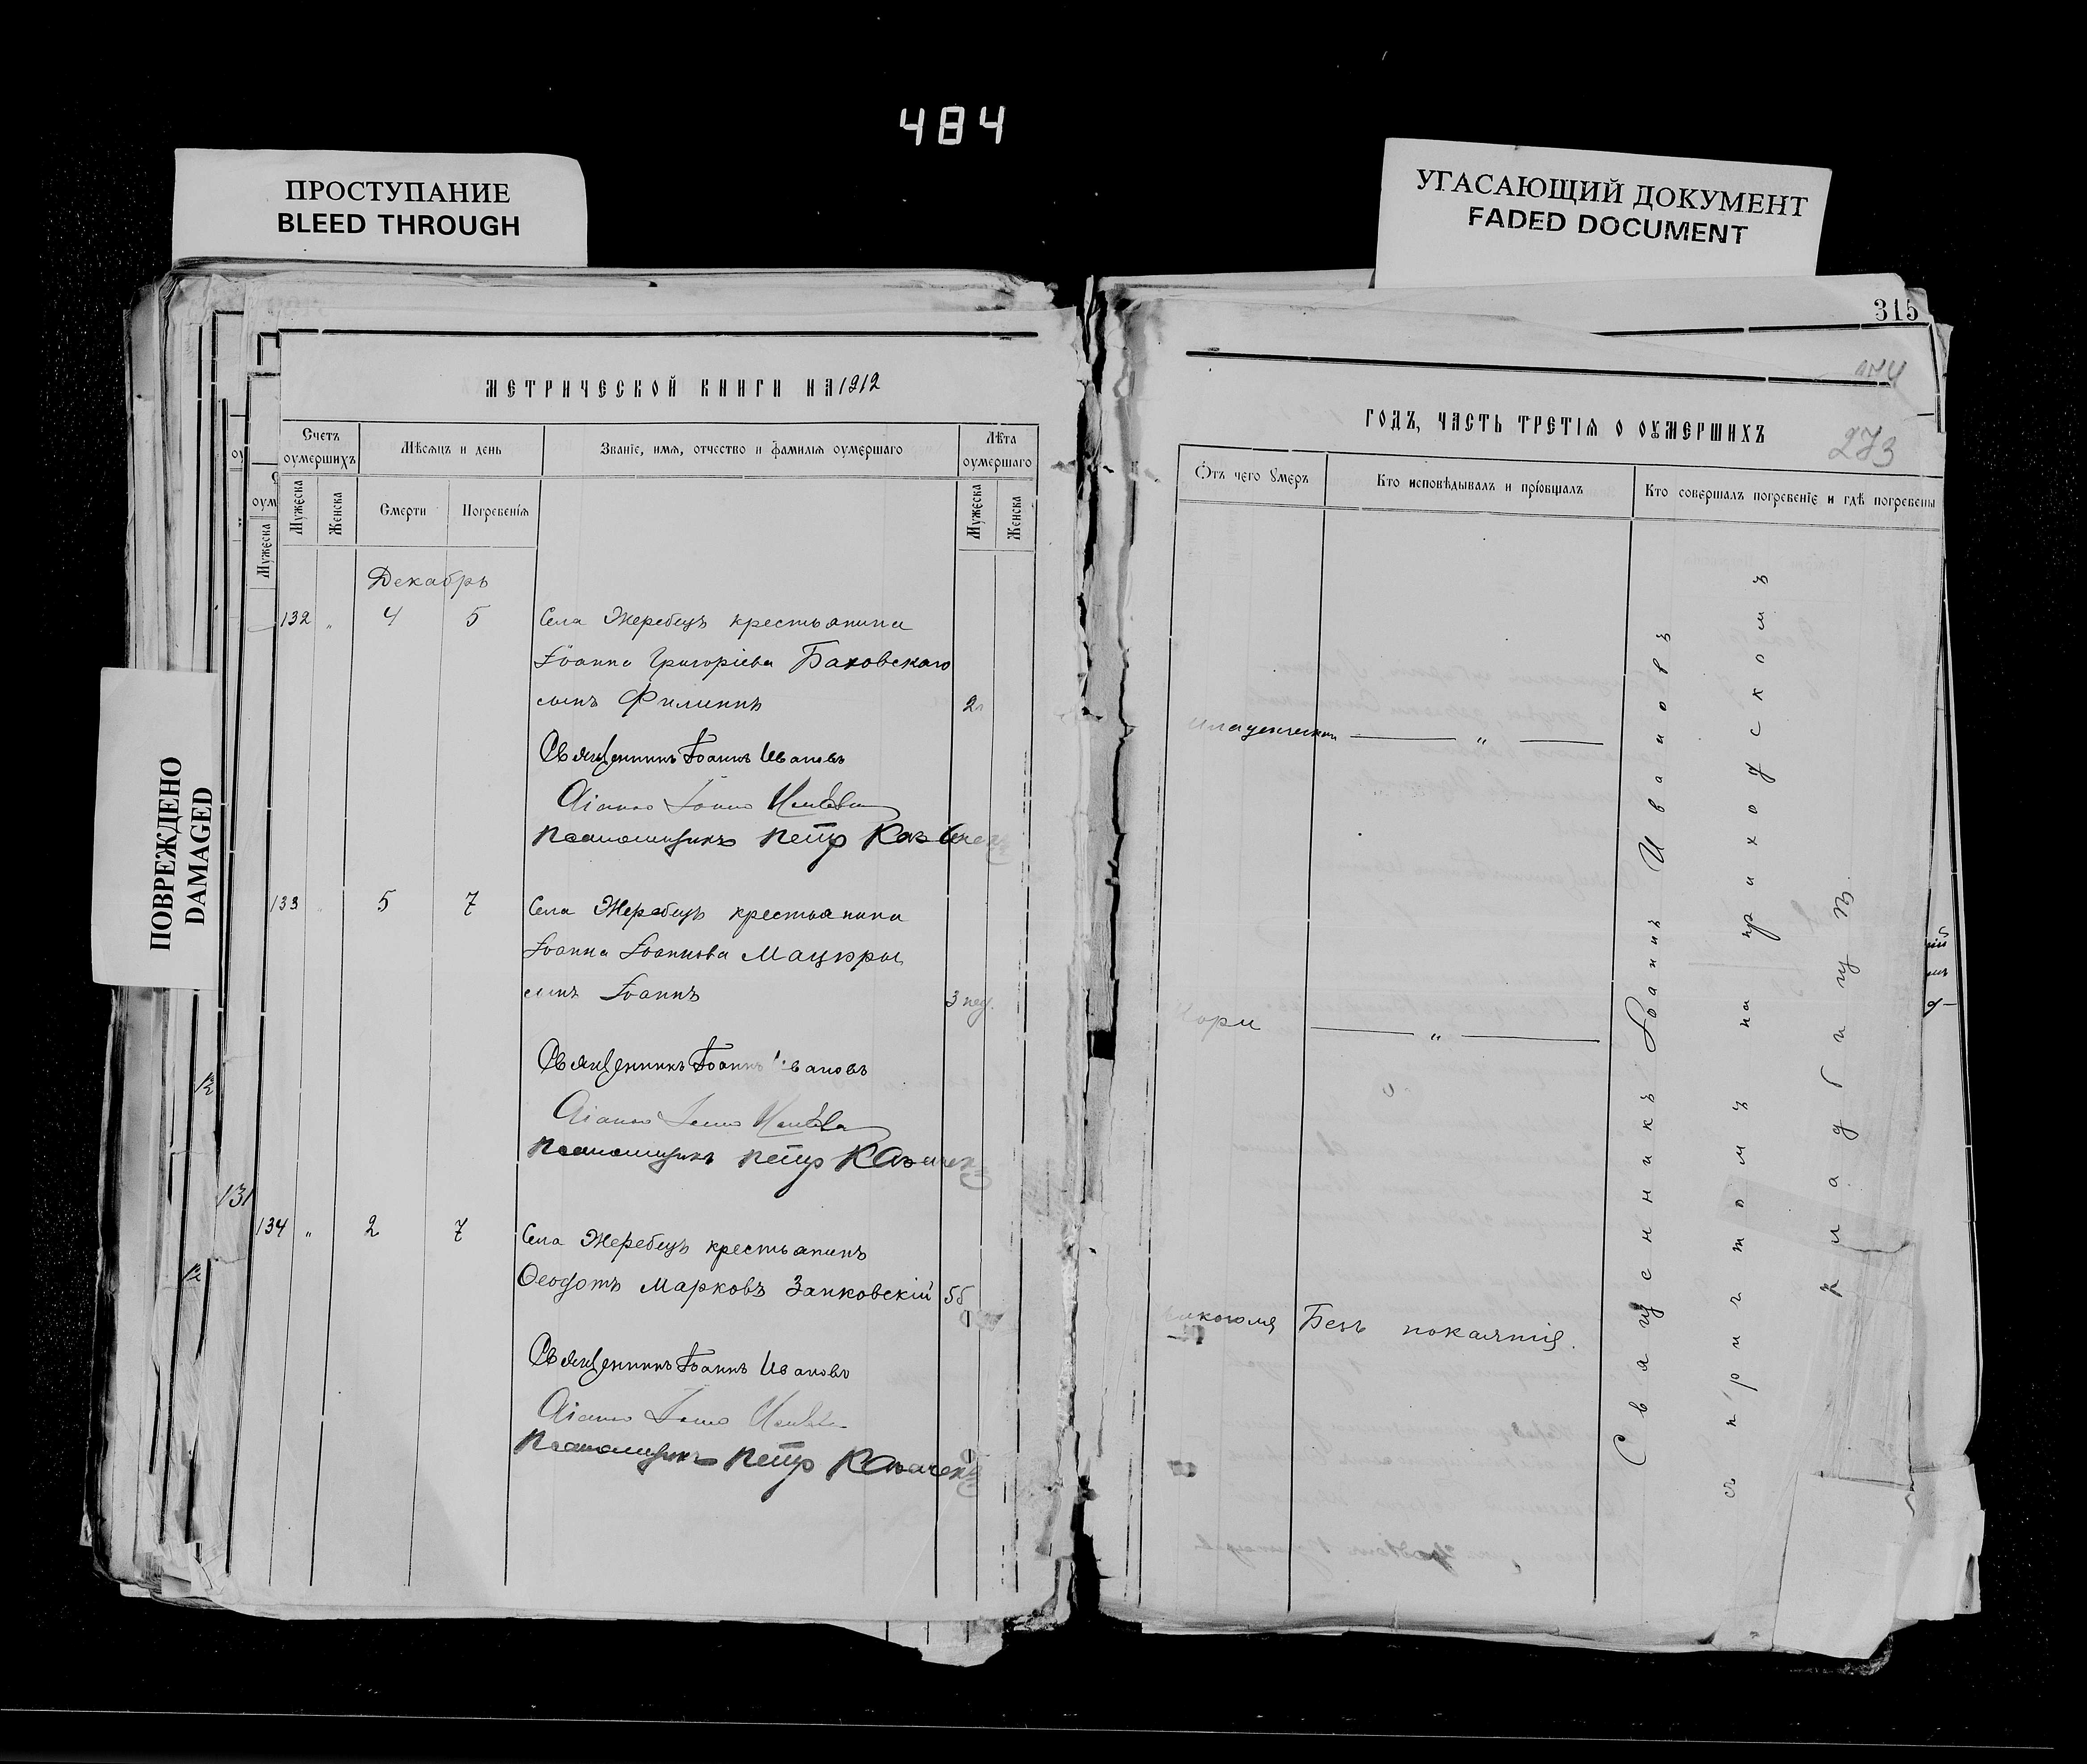 484
ПРОСТУПАНИЕ
BLEED THROUGH
УГАСАЮЩИЙ ДОКУМЕНТ
FADED DOCUMENT
ПОВРЕЖДЕНО
DAMAGED
МЕТРИЧЕСКОЙ КНИГИ НА 1912
Счетъ оумершихъ
Мѣсяцъ и день
Званіе, имя, отчество и фамилія оумершаго
Лѣта оумершаго
Мужеска
Женска
Смерти
Погребенія
Мужеска
Женска
Декабрь
132 " 4 5 Села Жеребецъ крестьянина
Іоанна Григоріева Баковскаго
сынъ Филиппъ 2
Священникъ Іоаннъ Ивановъ
Псаломщикъ Петръ
133 " 5 7 Села Жеребецъ крестьянина
Іоанна Іоаннова Мацюры
сынъ Іоаннъ 3 нед.
Священникъ Іоаннъ Ивановъ
Псаломщикъ Петръ
131
134 " 2 7 Села Жеребецъ крестьянинъ
Ѳеодотъ Марковъ Запковскій 55
Священникъ Іоаннъ Ивановъ
Псаломщикъ Петръ
315
273
ГОДЪ, ЧАСТЬ ТРЕТІЯ О ОУМЕРШИХЪ
Отъ чего умеръ
Кто исповѣдывалъ и пріобщалъ
Кто совершалъ погребеніе и гдѣ погребены
"
Кори "
Безъ покаянія.
Священникъ Іоаннъ Ивановъ
съ причтомъ на приходскомъ
кладбищѣ